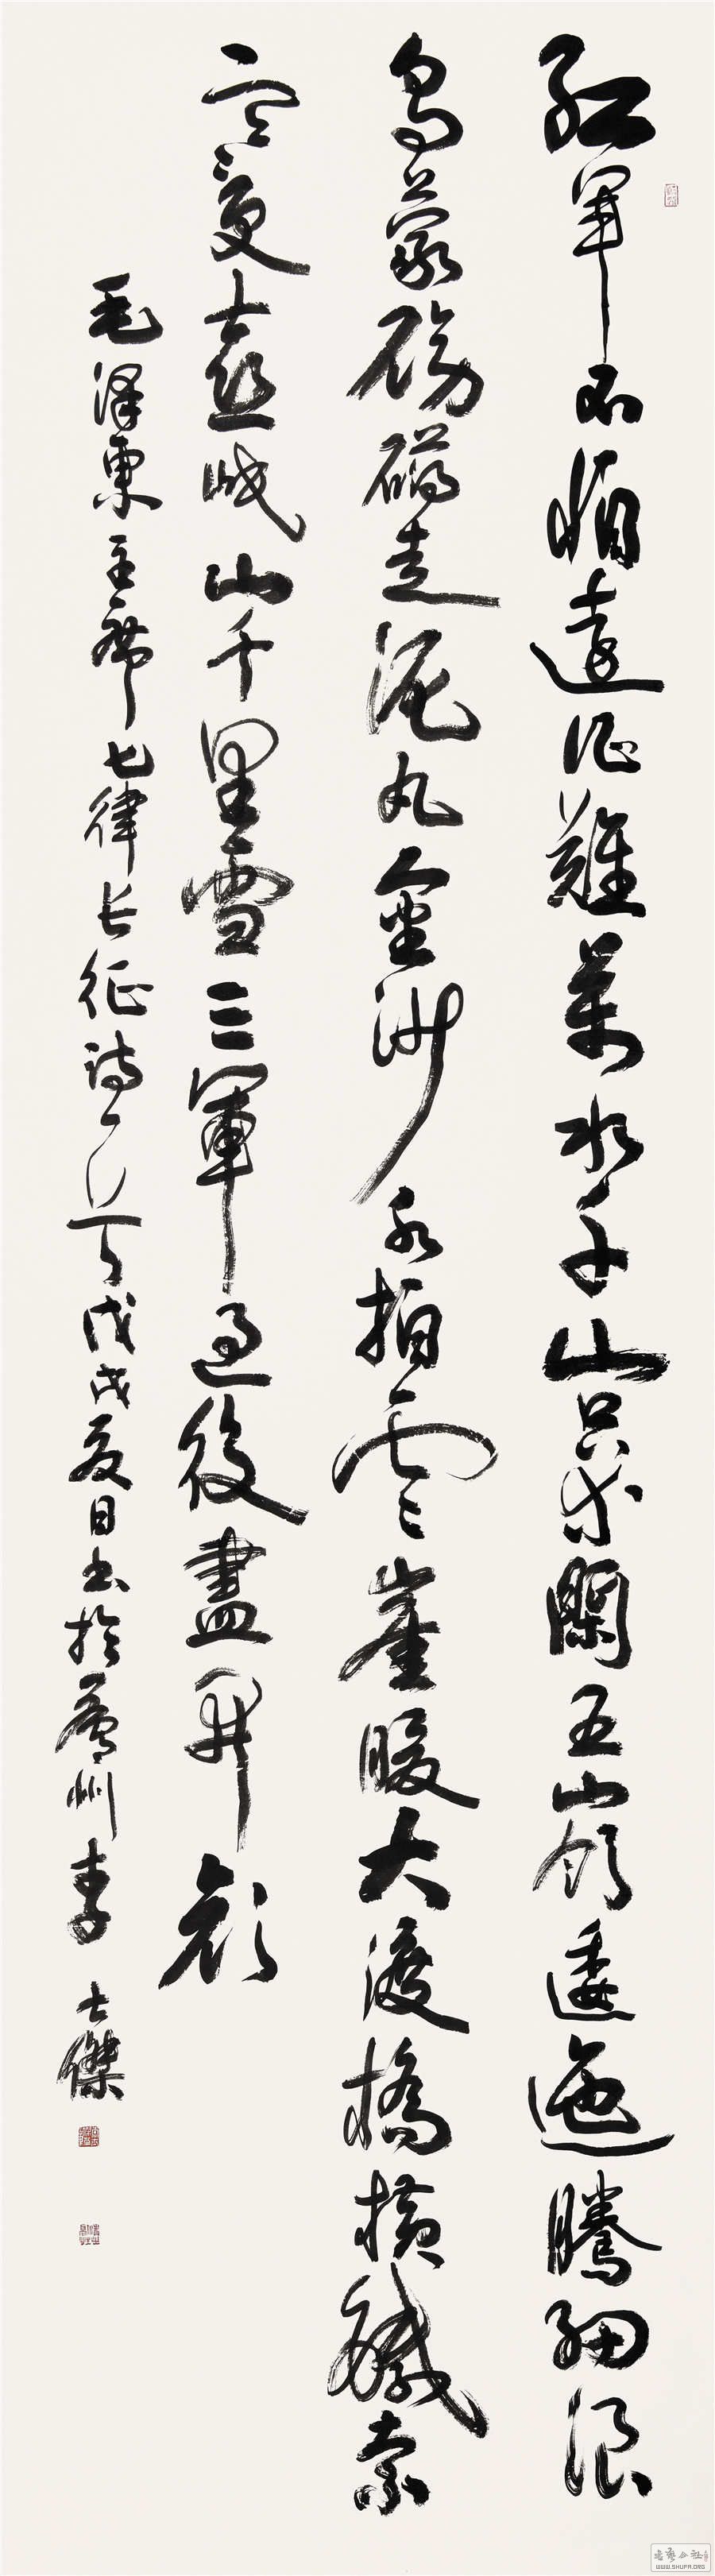 紅軍不怕遠征難萬水千山只等閑五嶺逶迤騰細浪
烏蒙磅礴走泥丸金沙水拍雲崖暖大渡橋橫鐵索
寒更喜岷山千里雪三軍過後盡開顏
毛澤東主席七律长征詩一首戊戌夏日書於廬州李士傑
WWW.SHUFA.ORG